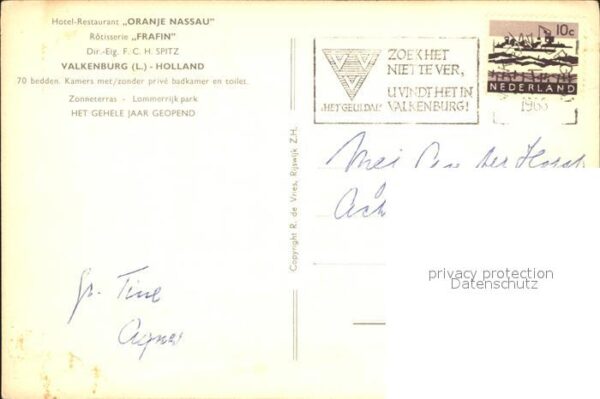 Hotel-Restaurant „ORANJE NASSAU"
Rôtisserie „FRAFIN"
Dir.-Eig. F. C. H. SPITZ
VALKENBURG (L.) - HOLLAND
70 bedden. Kamers met/zonder privé badkamer en toilet.
Zonneterras - Lommerrijk park
HET GEHELE JAAR GEOPEND
ZOEK HET
NIET TE VER,
U VINDT HET IN
VALKENBURG!
"HET GEULDAL"
10c
NEDERLAND
Copyright R. de Vries, Rijswijk Z.H.
van der Horst
Gr. Tine
Agnes
privacy protection
Datenschutz